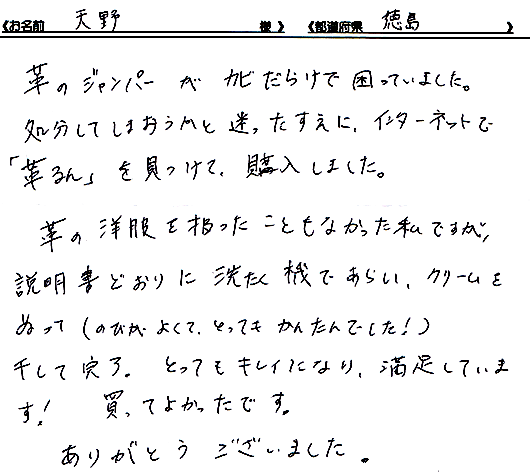 《お名前 天野 様》 《都道府県 徳島 》
革のジャンパーが カビだらけで困っていました。
処分してしまおうかと迷ったすえに、インターネットで
「革るん」を見つけて、購入しました。
革の洋服を扱ったこともなかった私ですが、
説明書どおりに洗たく機であらい、クリームを
ぬって（のびがよくて、とってもかんたんでした！）
干して完了。 とってもキレイになり、満足していま
す！ 買ってよかったです。
ありがとうございました。